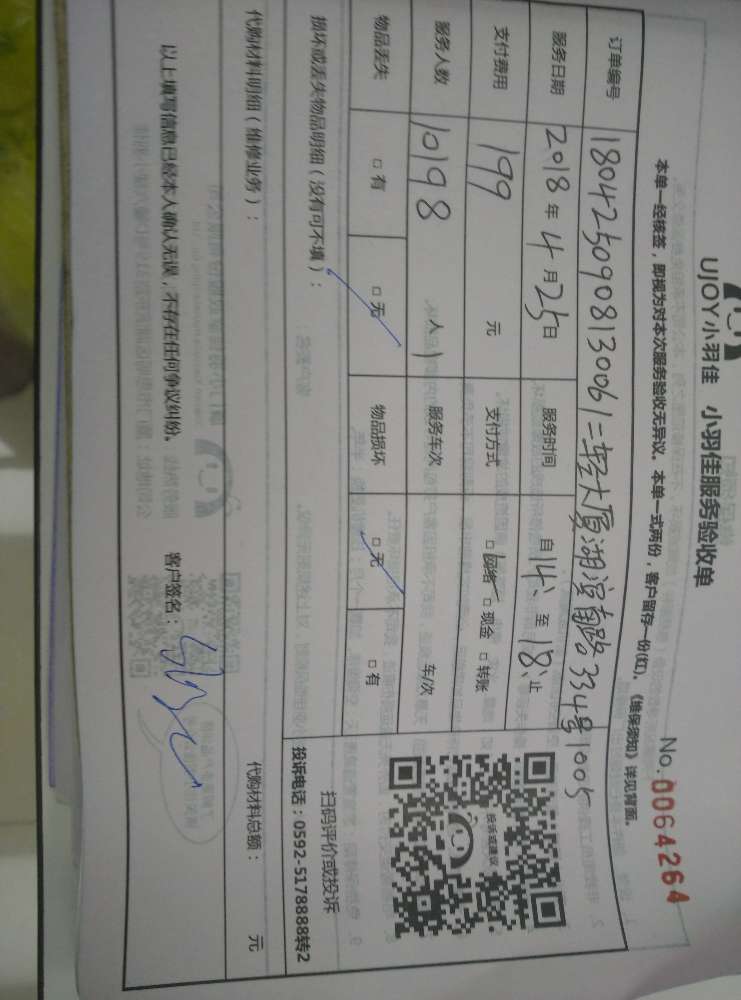 UJOY小羽佳 小羽佳服务验收单
No.0064264
本单一经核签，即视为对本次服务验收无异议。本单一式两份，客户留存一份(红)。《维保须知》详见背面。
订单编号 1804250908130061二轻大厦湖滨南路334号1005
服务日期 2018年4月25日 服务时间 自14: 至18:止
支付费用 199 元 支付方式 □网络 □现金 □转账
服务人数 10198 人 服务车次 车/次
物品丢失 □有 □无 物品损坏 □无 □有
投诉或建议
扫码评价或投诉
投诉电话：0592-5178888转2
损坏或丢失物品明细（没有可不填）：
代购材料明细（维修业务）：
代购材料总额： 元
以上填写信息已经本人确认无误，不存在任何争议纠纷。 客户签名：